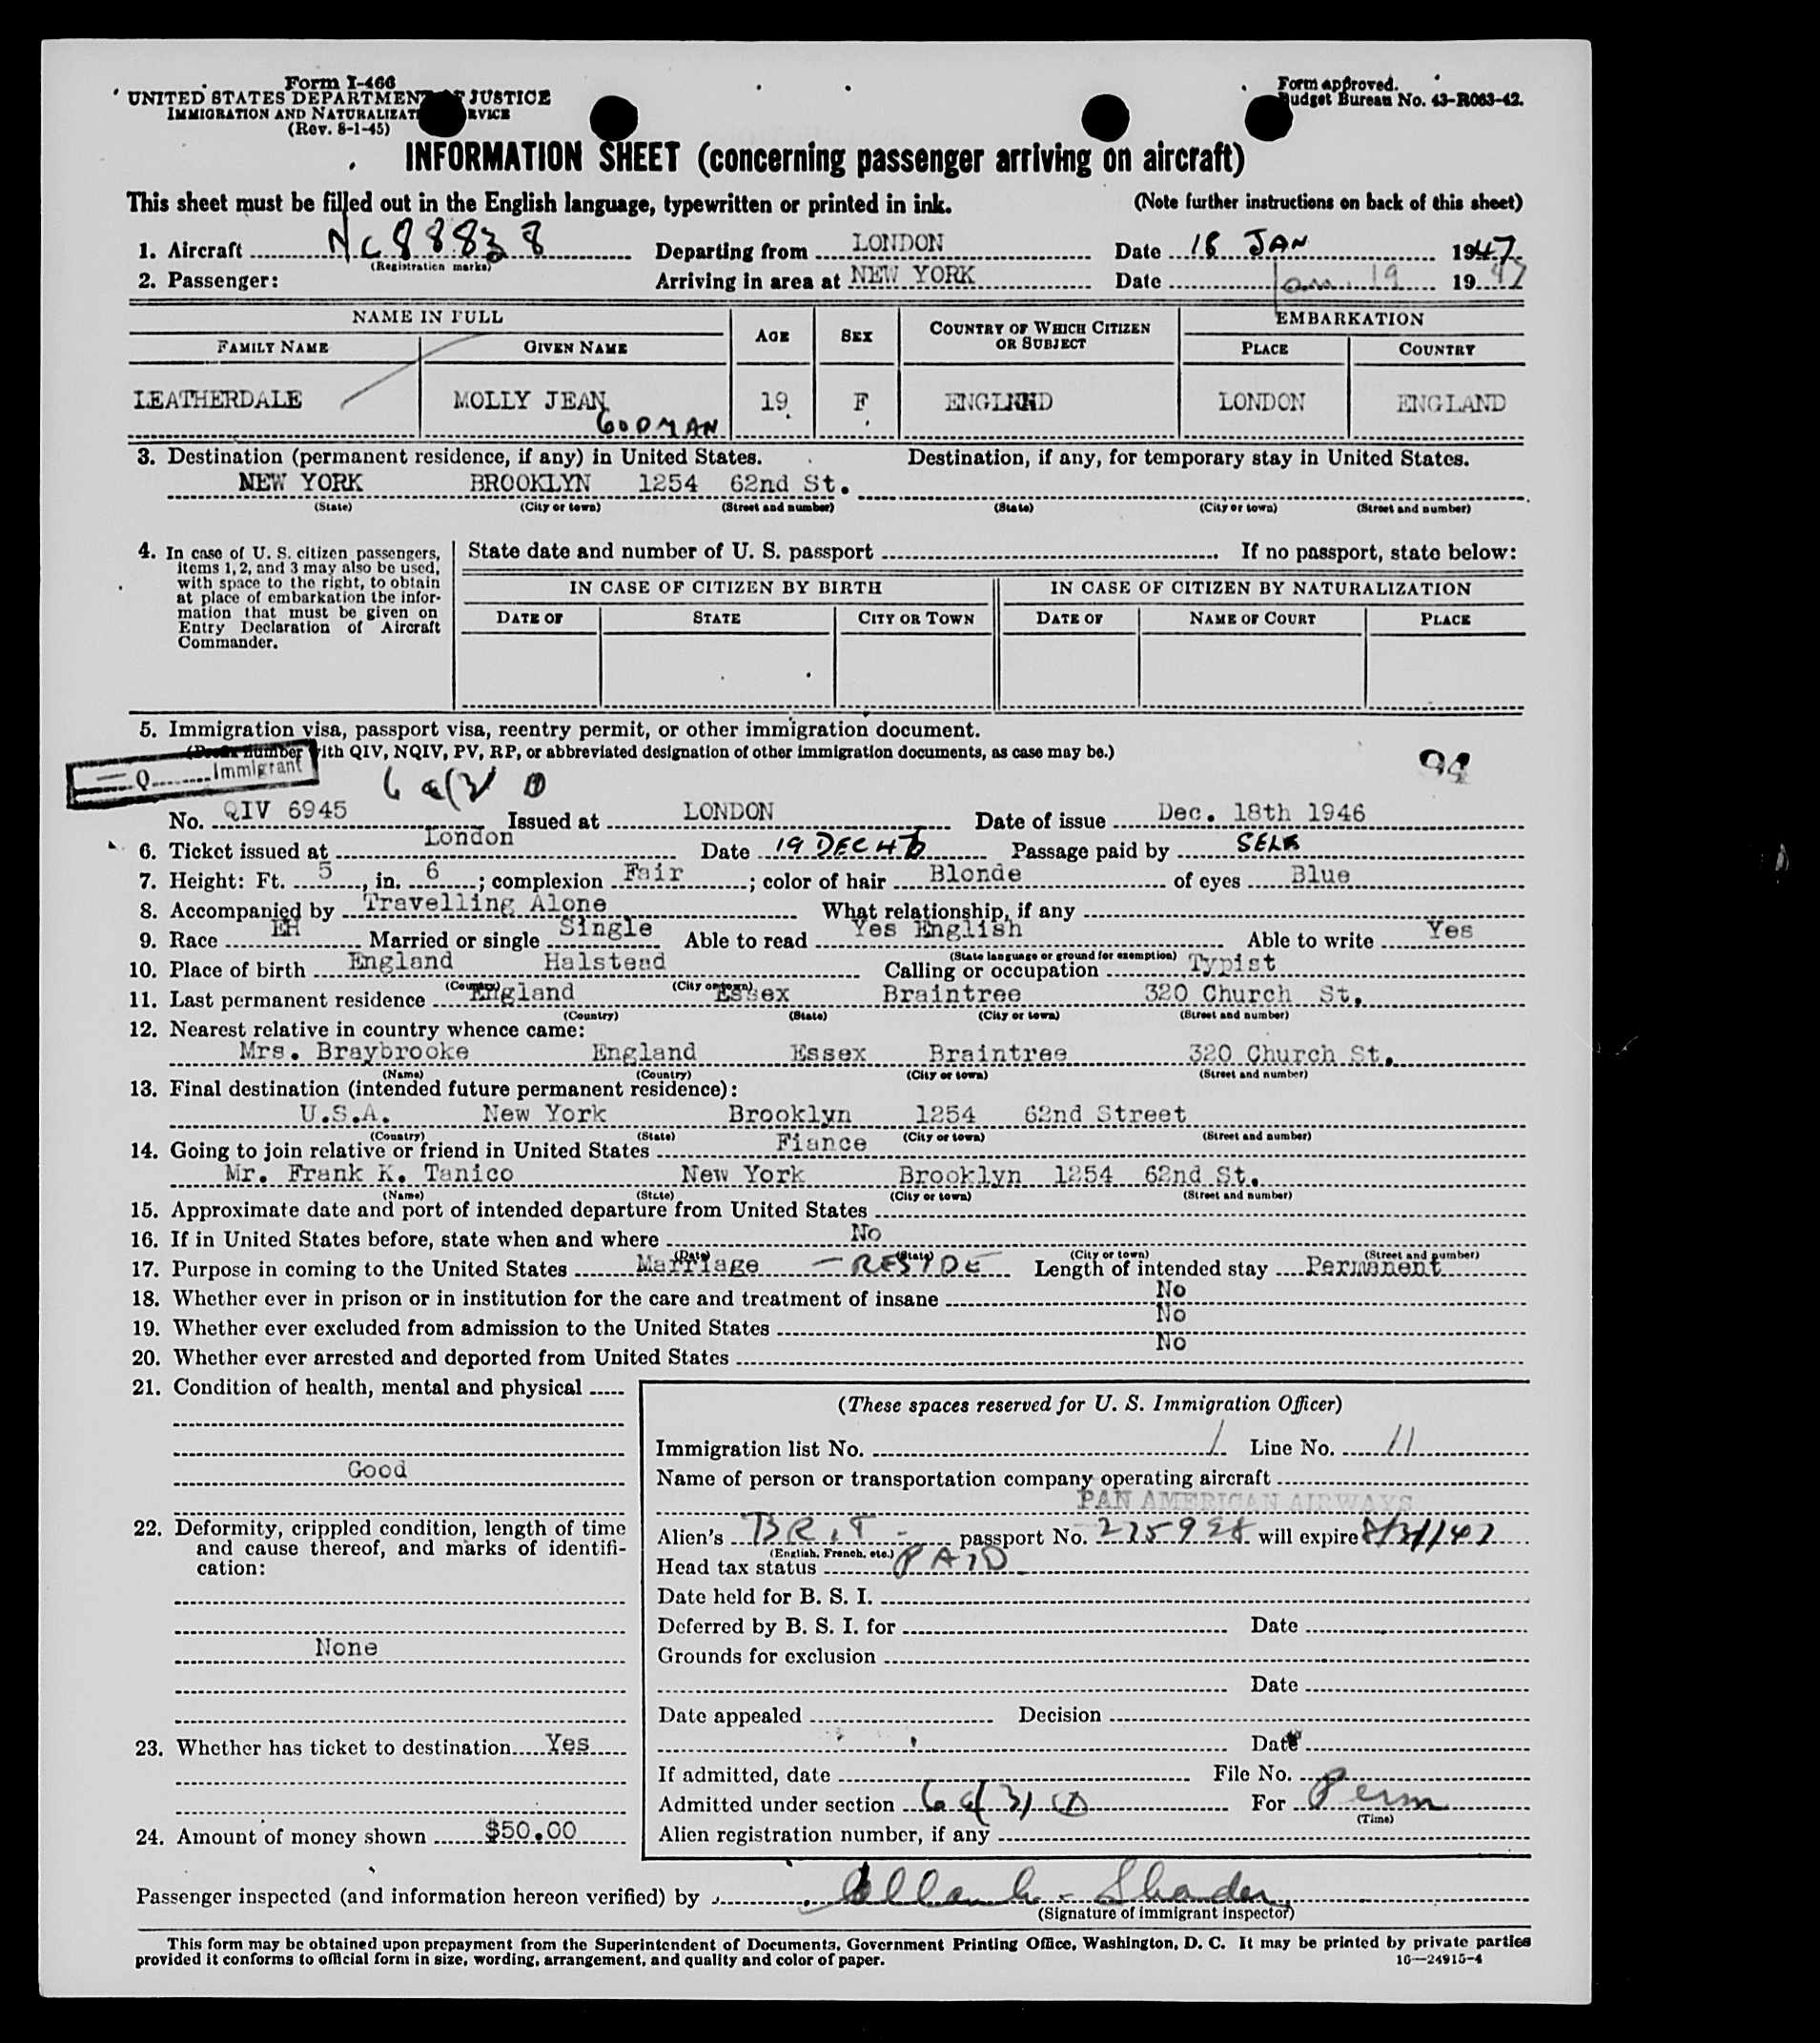 Form I-466
UNITED STATES DEPARTMENT OF JUSTICE
IMMIGRATION AND NATURALIZATION SERVICE
(Rev. 8-1-45)
Form approved.
Budget Bureau No. 43-R063-42.
INFORMATION SHEET (concerning passenger arriving on aircraft)
This sheet must be filled out in the English language, typewritten or printed in ink. (Note further instructions on back of this sheet)
1. Aircraft NC88838 Departing from LONDON Date 18 JAN 1947
(Registration marks)
2. Passenger: Arriving in area at NEW YORK Date Jan. 19 1947
NAME IN FULL AGE SEX COUNTRY OF WHICH CITIZEN OR SUBJECT EMBARKATION
FAMILY NAME GIVEN NAME PLACE COUNTRY
LEATHERDALE MOLLY JEAN 19 F ENGLAND LONDON ENGLAND
GOODMAN
3. Destination (permanent residence, if any) in United States. Destination, if any, for temporary stay in United States.
NEW YORK BROOKLYN 1254 62nd St.
(State) (City or town) (Street and number) (State) (City or town) (Street and number)
4. In case of U. S. citizen passengers,
items 1, 2, and 3 may also be used,
with space to the right, to obtain
at place of embarkation the infor-
mation that must be given on
Entry Declaration of Aircraft
Commander.
State date and number of U. S. passport If no passport, state below:
IN CASE OF CITIZEN BY BIRTH IN CASE OF CITIZEN BY NATURALIZATION
DATE OF STATE CITY OR TOWN DATE OF NAME OF COURT PLACE
5. Immigration visa, passport visa, reentry permit, or other immigration document.
(Prefix number with QIV, NQIV, PV, RP, or abbreviated designation of other immigration documents, as case may be.)
Q Immigrant
94
No. QIV 6945 Issued at LONDON Date of issue Dec. 18th 1946
6. Ticket issued at London Date 19 DEC 46 Passage paid by SELF
7. Height: Ft. 5, in. 6; complexion Fair; color of hair Blonde of eyes Blue
8. Accompanied by Travelling Alone What relationship, if any
9. Race EH Married or single Single Able to read Yes English Able to write Yes
(State language or ground for exemption)
10. Place of birth England Halstead Calling or occupation Typist
(Country) (City or town)
11. Last permanent residence England Essex Braintree 320 Church St.
(Country) (State) (City or town) (Street and number)
12. Nearest relative in country whence came:
Mrs. Braybrooke England Essex Braintree 320 Church St.
(Name) (Country) (City or town) (Street and number)
13. Final destination (intended future permanent residence):
U.S.A. New York Brooklyn 1254 62nd Street
(Country) (State) (City or town) (Street and number)
14. Going to join relative or friend in United States Fiance
Mr. Frank K. Tanico New York Brooklyn 1254 62nd St.
(Name) (State) (City or town) (Street and number)
15. Approximate date and port of intended departure from United States
16. If in United States before, state when and where No
(Date) (State) (City or town) (Street and number)
17. Purpose in coming to the United States Marriage — RESIDE Length of intended stay Permanent
18. Whether ever in prison or in institution for the care and treatment of insane No
19. Whether ever excluded from admission to the United States No
20. Whether ever arrested and deported from United States No
21. Condition of health, mental and physical
Good
22. Deformity, crippled condition, length of time
and cause thereof, and marks of identifi-
cation:
None
23. Whether has ticket to destination Yes
24. Amount of money shown $50.00
(These spaces reserved for U. S. Immigration Officer)
Immigration list No. 1 Line No. 11
Name of person or transportation company operating aircraft
PAN AMERICAN AIRWAYS
Alien's BRIT - passport No. will expire
(English, French, etc.)
Head tax status PAID
Date held for B. S. I.
Deferred by B. S. I. for Date
Grounds for exclusion
Date
Date appealed Decision
Date
If admitted, date File No.
Admitted under section For Perm
(Time)
Alien registration number, if any
Passenger inspected (and information hereon verified) by
(Signature of immigrant inspector)
This form may be obtained upon prepayment from the Superintendent of Documents, Government Printing Office, Washington, D. C. It may be printed by private parties
provided it conforms to official form in size, wording, arrangement, and quality and color of paper. 16—24915-4